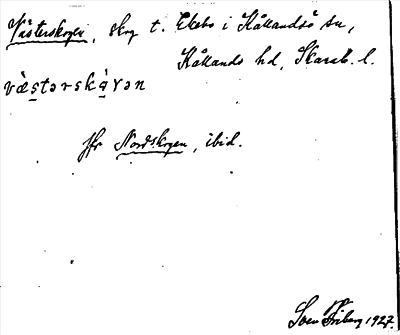 Västerskogen, skog t. Ekebo i Kållandsö sn,
Kållands hd, Skarab. l.
væ̀stərskàɤən
jfr Nordskogen, ibid.
Sven Friberg 1927.